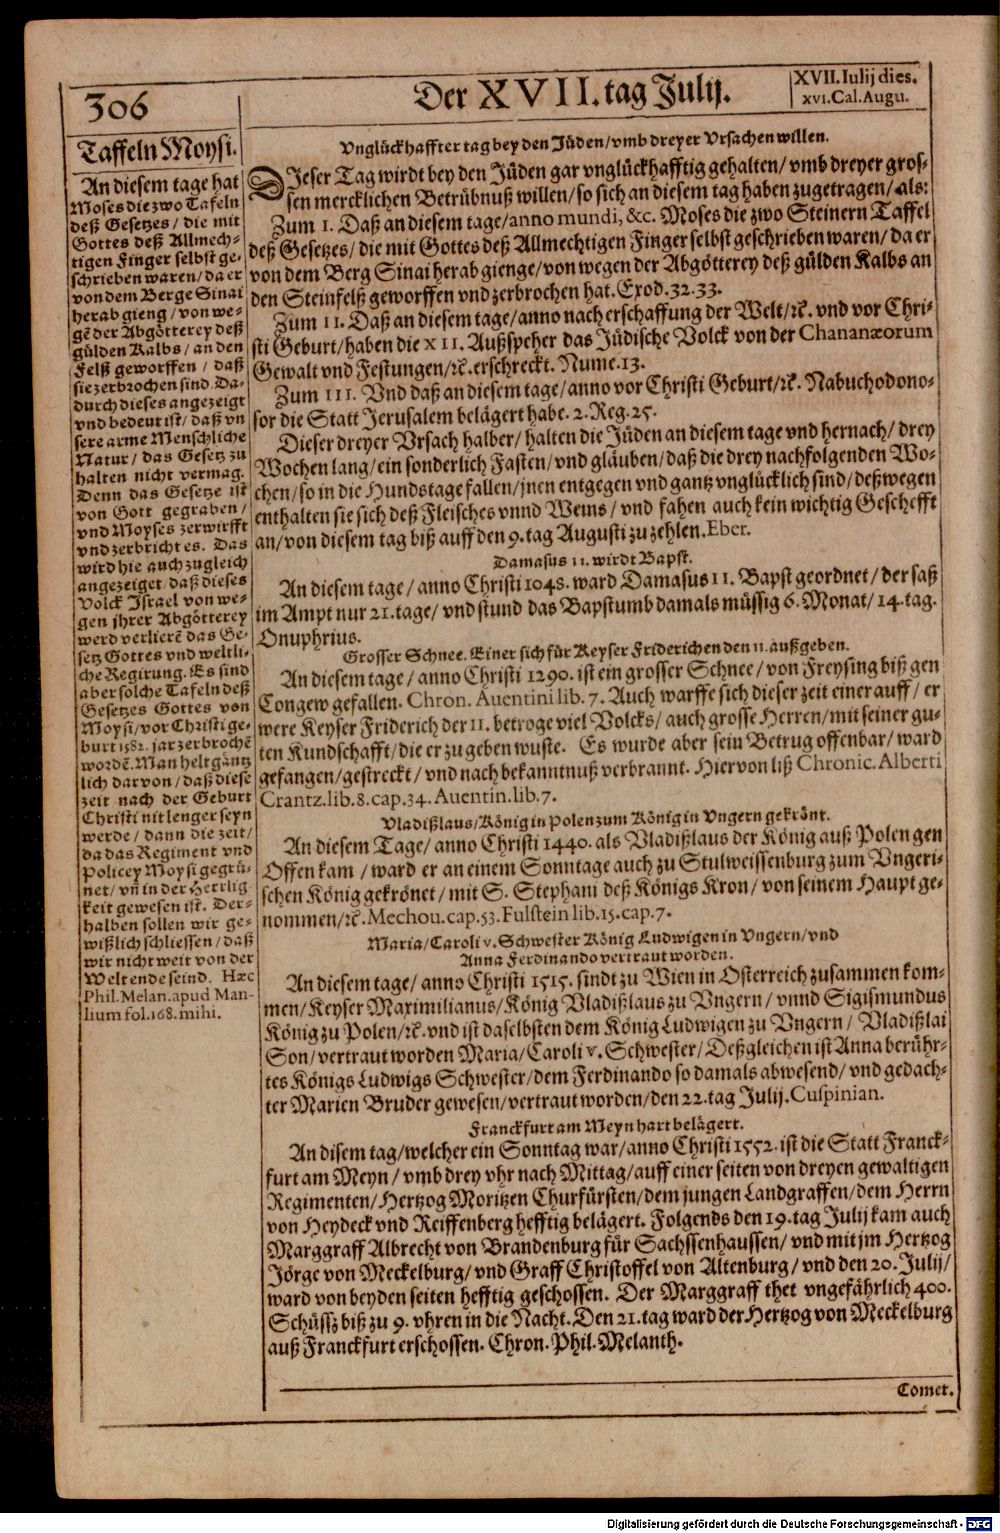 306
Der XVII. tag Julij.
XVII. Iulij dies.
xvi. Cal. Augu.
Taffeln Moysi.
An diesem tage hat
Moses die zwo Tafeln
deß Gesetzes / die mit
Gottes deß Allmech-
tigen Finger selbst ge-
schrieben waren / da er
von dem Berge Sinai
herab gieng / von we-
gẽ der Abgötterey deß
gülden Kalbs / an den
Felß geworffen / daß
sie zerbrochen sind. Da-
durch dieses angezeigt
vnd bedeut ist / daß vn
sere arme Menschliche
Natur / das Gesetz zu
halten nicht vermag.
Denn das Gesetze ist
von Gott gegraben /
vnd Moyses zerwirfft
vnd zerbricht es. Das
wird hie auch zugleich
angezeiget / daß dieses
Volck Israel von we-
gen jhrer Abgötterey
werd verlierẽ das Ge-
setz Gottes vnd weltli-
che Regirung. Es sind
aber solche Tafeln deß
Gesetzes Gottes von
Moysi / vor Christi ge-
burt 1582. jar zerbrochẽ
wordẽ. Man helt gãntz
lich darvon / daß diese
zeit nach der Geburt
Christi nit lenger seyn
werde / dann die zeit /
da das Regiment vnd
Policey Moysi gegrü-
net / vñ in der Herrlig
keit gewesen ist. Der-
halben sollen wir ge-
wißlich schliessen / daß
wir nicht weit von der
Welt ende seind. Hæc
Phil. Melan. apud Man-
lium fol. 168. mihi.
Vnglückhaffter tag bey den Jüden / vmb dreyer Vrsachen willen.
DJeser Tag wirdt bey den Jüden gar vnglückhafftig gehalten / vmb dreyer gros-
sen mercklichen Betrübnuß willen / so sich an diesem tag haben zugetragen / als:
Zum I. Daß an diesem tage / anno mundi, &c. Moses die zwo Steinern Taffel
deß Gesetzes / die mit Gottes deß Allmechtigen Finger selbst geschrieben waren / da er
von dem Berg Sinai herab gienge / von wegen der Abgötterey deß gülden Kalbs an
den Steinfelß geworffen vnd zerbrochen hat. Exod. 32. 33.
Zum II. Daß an diesem tage / anno nach erschaffung der Welt / ꝛc. vnd vor Chri-
sti Geburt / haben die XII. Außspeher das Jüdische Volck von der Chananæorum
Gewalt vnd Festungen / ꝛc. erschreckt. Nume. 13.
Zum III. Vnd daß an diesem tage / anno vor Christi Geburt / ꝛc. Nabuchodono-
sor die Statt Jerusalem belägert habe. 2. Reg. 25.
Dieser dreyer Vrsach halber / halten die Jüden an diesem tage vnd hernach / drey
Wochen lang / ein sonderlich Fasten / vnd gläuben / daß die drey nachfolgenden Wo-
chen / so in die Hundstage fallen / jnen entgegen vnd gantz vnglücklich sind / deßwegen
enthalten sie sich deß Fleisches vnnd Weins / vnd fahen auch kein wichtig Geschefft
an / von diesem tag biß auff den 9. tag Augusti zu zehlen. Eber.
Damasus II. wirdt Bapst.
An diesem tage / anno Christi 1048. ward Damasus II. Bapst geordnet / der saß
im Ampt nur 21. tage / vnd stund das Bapstumb damals müssig 6. Monat / 14. tag.
Onuphrius.
Grosser Schnee. Einer sich für Keyser Friderichen den II. außgeben.
An diesem tage / anno Christi 1290. ist ein grosser Schnee / von Freysing biß gen
Congew gefallen. Chron. Auentini lib. 7. Auch warffe sich dieser zeit einer auff / er
were Keyser Friderich der II. betroge viel Volcks / auch grosse Herren / mit seiner gu-
ten Kundschafft / die er zu geben wuste. Es wurde aber sein Betrug offenbar / ward
gefangen / gestreckt / vnd nach bekanntnuß verbrannt. Hiervon liß Chronic. Alberti
Crantz. lib. 8. cap. 34. Auentin. lib. 7.
Vladißlaus / König in Polen zum König in Vngern gekrönt.
An diesem Tage / anno Christi 1440. als Vladißlaus der König auß Polen gen
Offen kam / ward er an einem Sonntage auch zu Stulweissenburg zum Vngeri-
schen König gekrönet / mit S. Stephani deß Königs Kron / von seinem Haupt ge-
nommen / ꝛc. Mechou. cap. 53. Fulstein lib. 15. cap. 7.
Maria / Caroli v. Schwester König Ludwigen in Vngern / vnd
Anna Ferdinando vertraut worden.
An diesem tage / anno Christi 1515. sindt zu Wien in Osterreich zusammen kom-
men / Keyser Maximilianus / König Vladißlaus zu Vngern / vnnd Sigismundus
König zu Polen / ꝛc. vnd ist daselbsten dem König Ludwigen zu Vngern / Vladißlai
Son / vertraut worden Maria / Caroli v. Schwester / Deßgleichen ist Anna berühr-
tes Königs Ludwigs Schwester / dem Ferdinando so damals abwesend / vnd gedach-
ter Marien Bruder gewesen / vertraut worden / den 22. tag Julij. Cuspinian.
Franckfurt am Meyn hart belägert.
An disem tag / welcher ein Sonntag war / anno Christi 1552. ist die Statt Franck-
furt am Meyn / vmb drey vhr nach Mittag / auff einer seiten von dreyen gewaltigen
Regimenten / Hertzog Moritzen Churfürsten / dem jungen Landgraffen / dem Herrn
von Heydeck vnd Reiffenberg hefftig belägert. Folgends den 19. tag Julij kam auch
Marggraff Albrecht von Brandenburg für Sachssenhaussen / vnd mit jm Hertzog
Jörge von Meckelburg / vnd Graff Christoffel von Altenburg / vnd den 20. Julij /
ward von beyden seiten hefftig geschossen. Der Marggraff thet vngefährlich 400.
Schüssz biß zu 9. vhren in die Nacht. Den 21. tag ward der Hertzog von Meckelburg
auß Franckfurt erschossen. Chron. Phil. Melanth.
Comet.
Digitalisierung gefördert durch die Deutsche Forschungsgemeinschaft - DFG